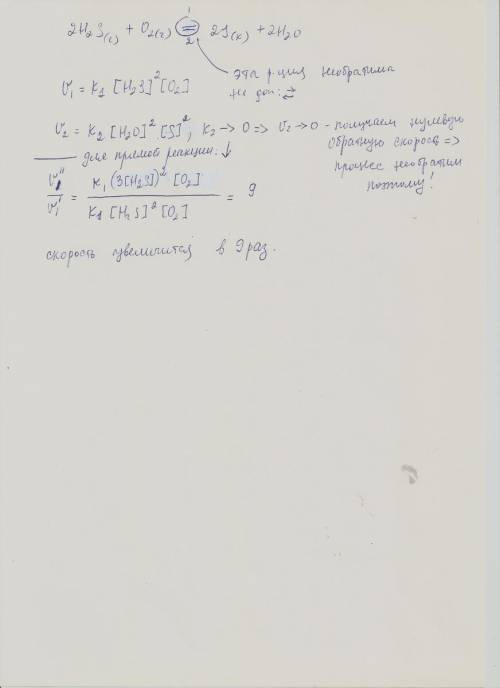 1
2H₂S(г) + O₂(г) = 2S(к) + 2H₂O
2
эта р-ция необратима
не доп: ⇄
V₁ = K₁ [H₂S]² [O₂]
V₂ = K₂ [H₂O]² [S]², K₂ → 0 => V₂ → 0 - получаем нулевую
обратную скорость =>
процесс необратим
поэтому!
для прямой реакции: ↓
V₁''/V₁' = K₁ (3[H₂S])² [O₂] / K₁ [H₂S]² [O₂] = 9
скорость увеличится в 9 раз.